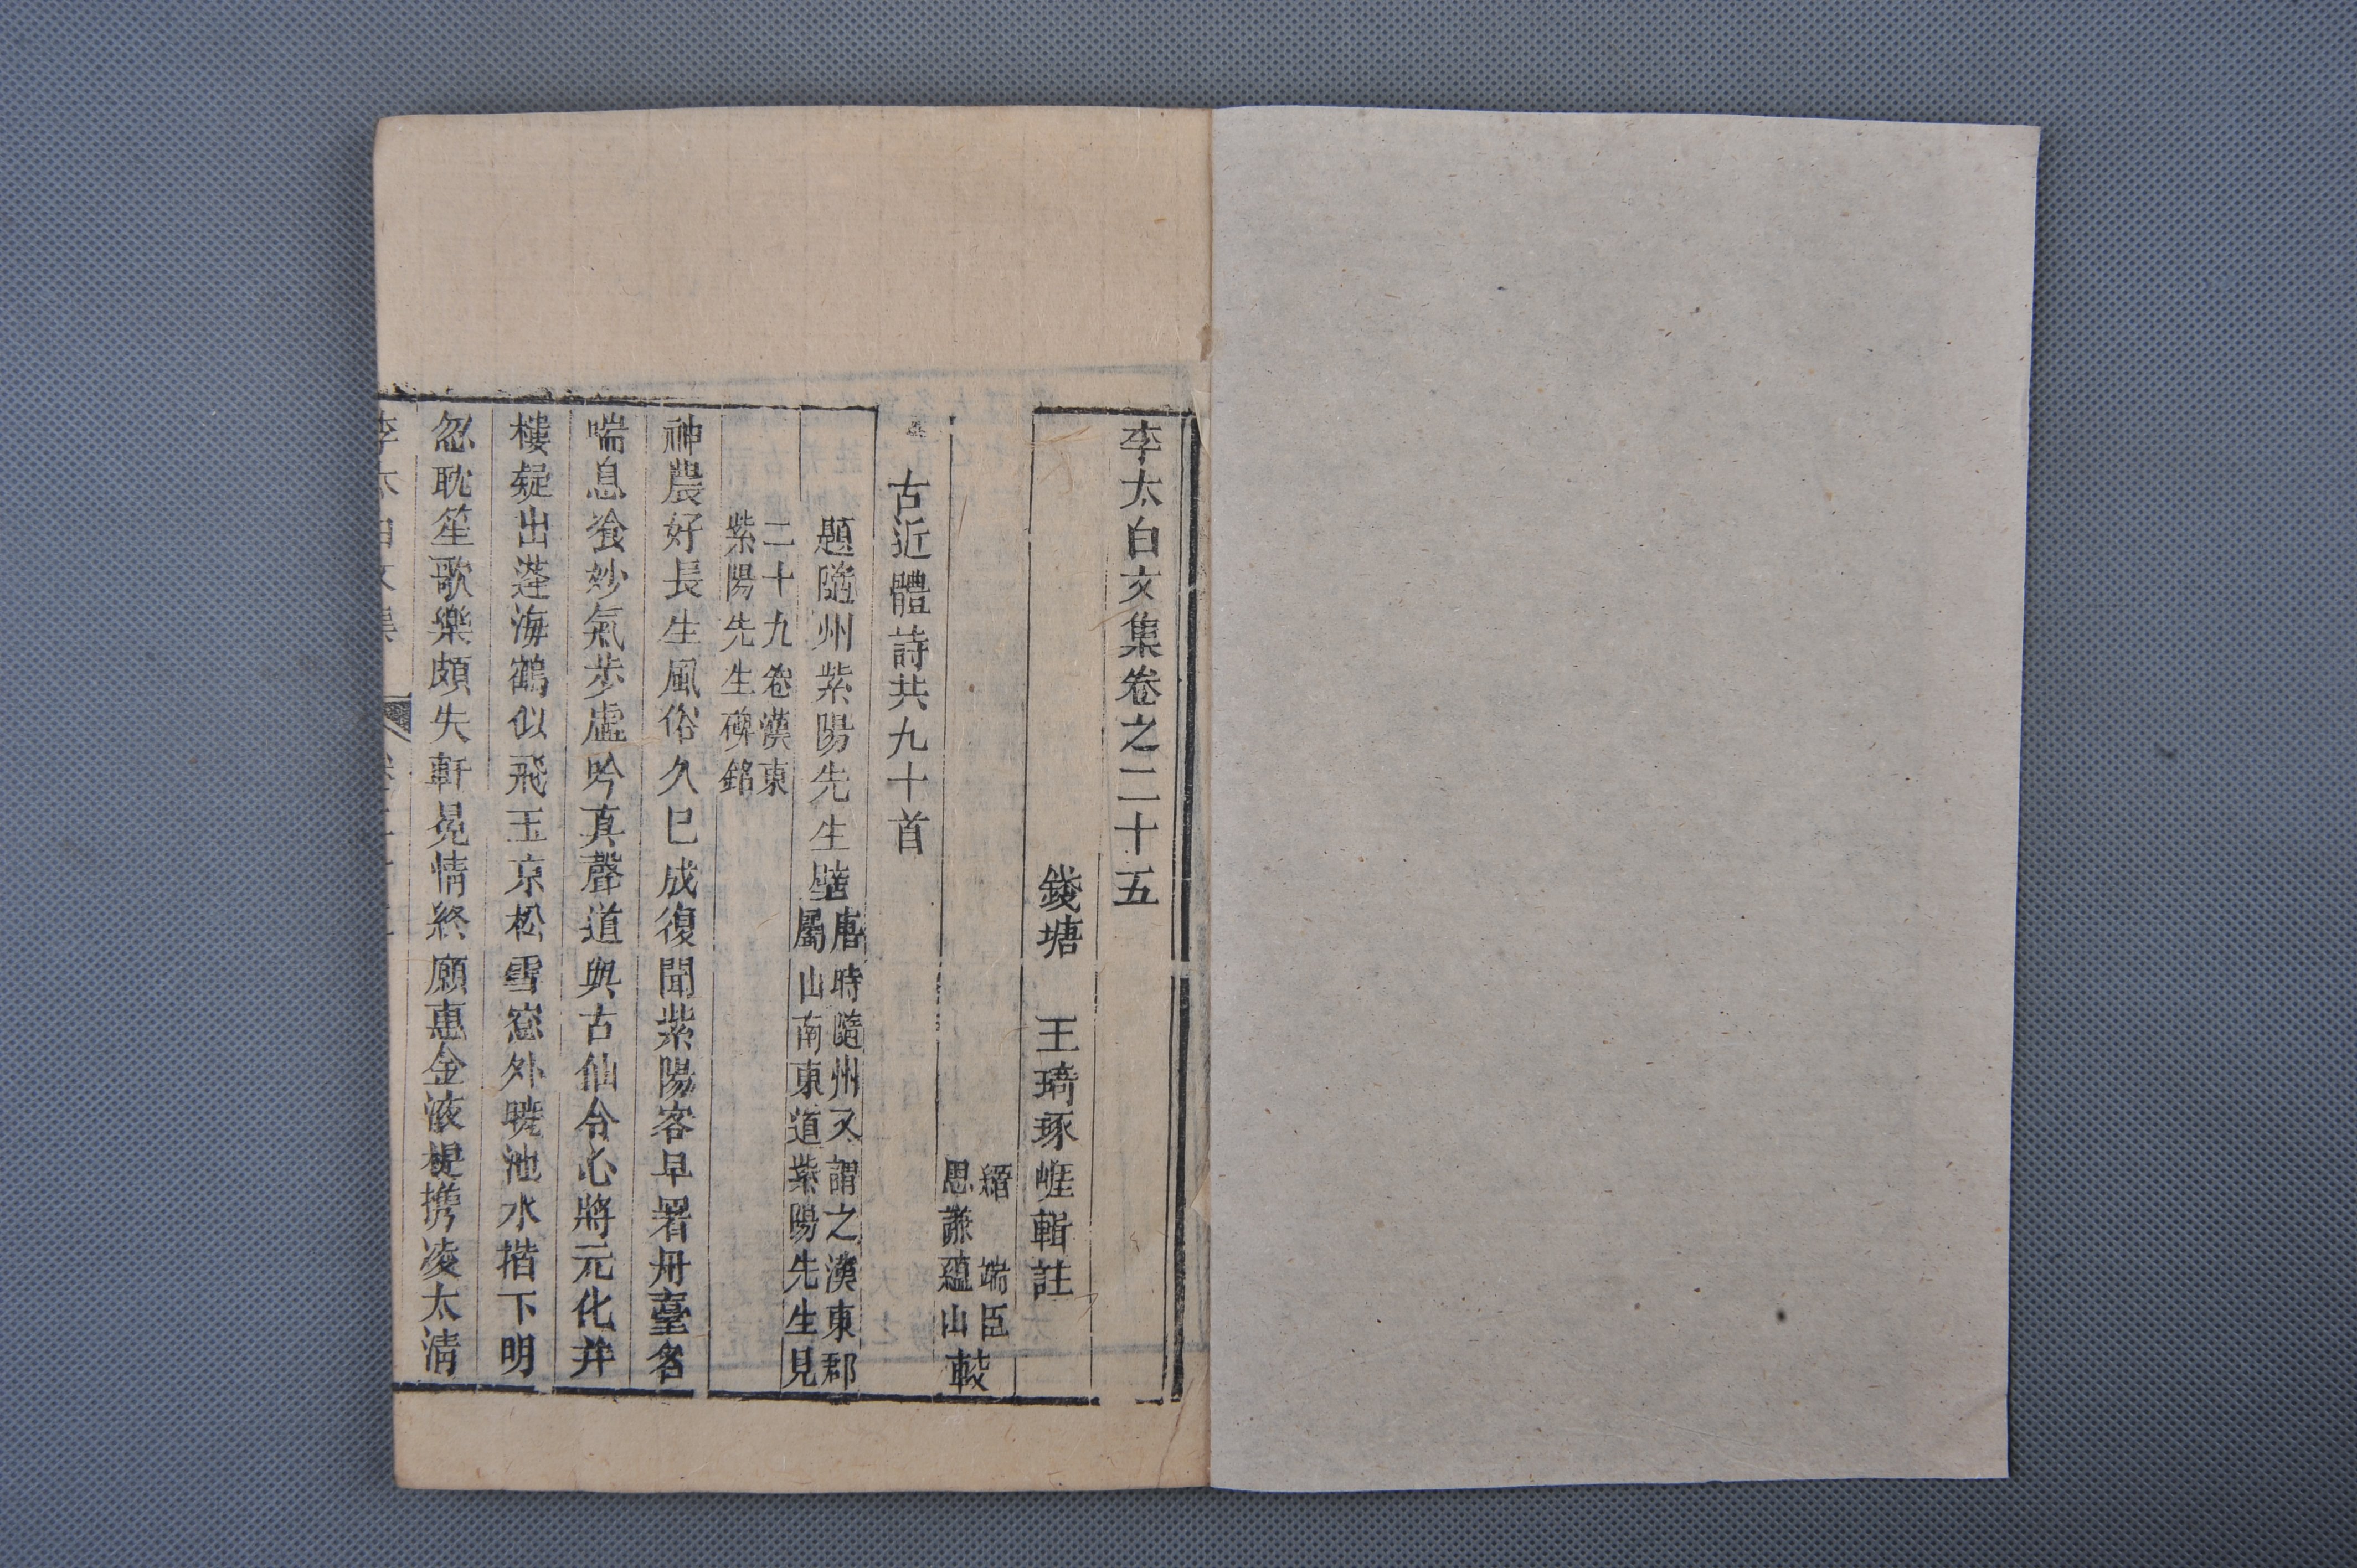 李太白文集卷之二十五
錢塘 王琦琢崖輯註
縉 端臣
思謙蘊山 較
古近體詩共九十首
題隨州紫陽先生壁
唐時隨州又謂之漢東郡
屬山南東道紫陽先生見
二十九卷漢東
紫陽先生碑銘
神農好長生風俗久已成復聞紫陽客早署丹臺名
喘息飡妙氣步虛吟真聲道與古仙合心將元化并
樓疑出蓬海鶴似飛玉京松雪窻外曉池水堦下明
忽耽笙歌樂頗失軒冕情終願惠金液提攜凌太清
李太白文集